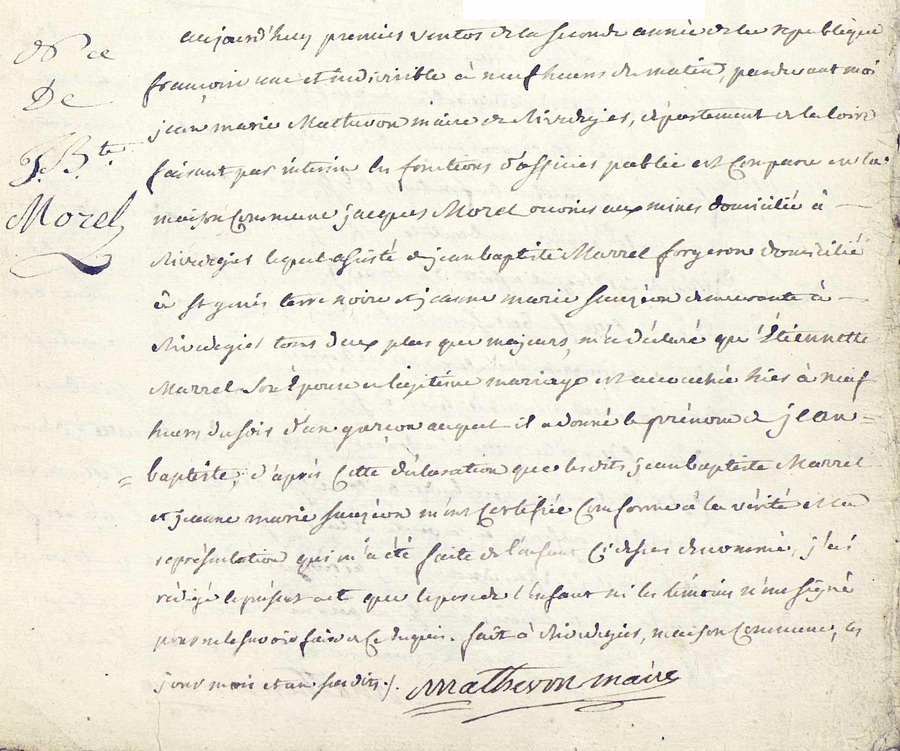 Nce
De
J. Bte
Morel
aujourd'huy premier ventos de la seconde année de la republique
françoise une et indivisible à neuf heures du matin, pardevant moi
jean marie Mathevon maire de Rivedegies, département de la loire
faisant par interim les fonctions d'officier public est Comparu en la
maison Commune jacques Morel ouvrier aux mines domicilié à
Rivedegies lequel assisté de jean baptiste Marrel forgeron domicilié
à st genis terre noire et jeanne marie sauzéon demeurante à
Rivedegies tous deux plus que majeurs, m'a déclaré que Etiennette
Marrel son Epouse en légitime mariage est accouchée hier à neuf
heures du soir d'un garcon auquel il a donné le prénom de jean=
=baptiste, d'après Cette déclaration que lesdits jean baptiste Marrel
et jeanne marie sauzéon m'ont Certifiée Conforme à la vérité et la
représentation qui m'a été faite de l'enfant Ci dessus denommé, j'ai
rédigé le présent act que le pere de l'Enfant ni les témoins n'ont signé
pour ne le savoir faire de Ce Requis. fait à Rivedegies, maison Commune, les
jour mois et an susdits ./. Mathevon maire